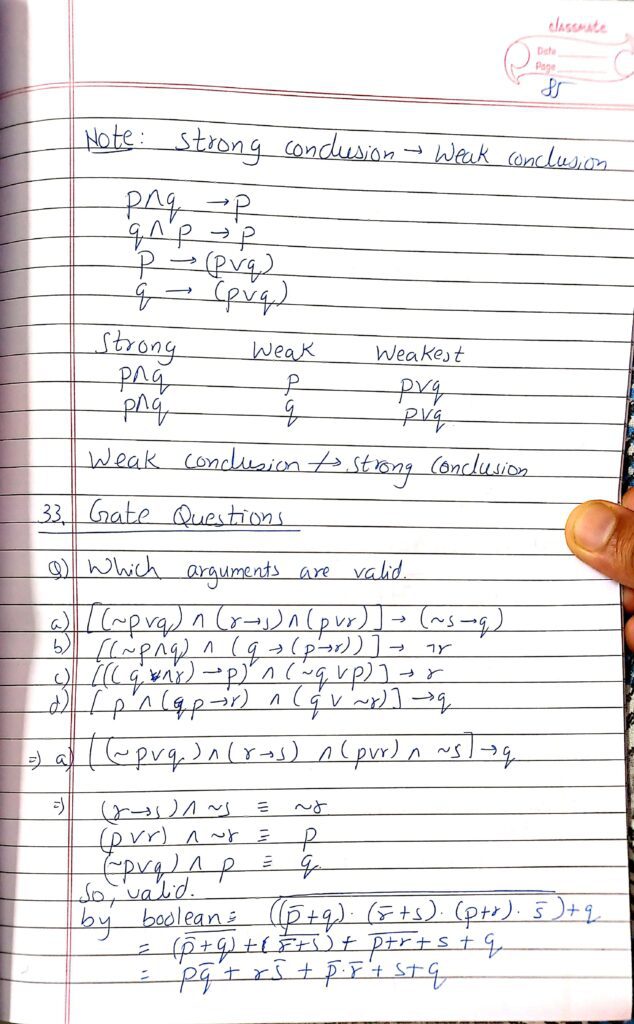 classmate
Date
Page
85
Note: Strong conclusion → Weak conclusion
p∧q → p
q∧p → p
p → (p∨q)
q → (p∨q)
Strong Weak Weakest
p∧q p p∨q
p∧q q p∨q
Weak conclusion ↛ strong Conclusion
33. Gate Questions
Q) Which arguments are valid.
a) [(~p∨q) ∧ (r→s) ∧ (p∨r)] → (~s→q)
b) [(~p∧q) ∧ (q → (p→r))] → ¬r
c) [((q ∧ r) → p) ∧ (~q ∨ p)] → r
d) [p ∧ (p→r) ∧ (q ∨ ~r)] → q
⇒ a) [(~p∨q) ∧ (r→s) ∧ (p∨r) ∧ ~s] → q
⇒ (r→s) ∧ ~s ≡ ~r
(p∨r) ∧ ~r ≡ p
(~p∨q) ∧ p ≡ q
So, valid.
by boolean: \overline{((p̄+q)·(r̄+s)·(p+r)·s̄)}+q
= \overline{(p̄+q)}+\overline{(r̄+s)}+\overline{p+r}+s+q
= pq̄ + rs̄ + p̄·r̄ + s+q